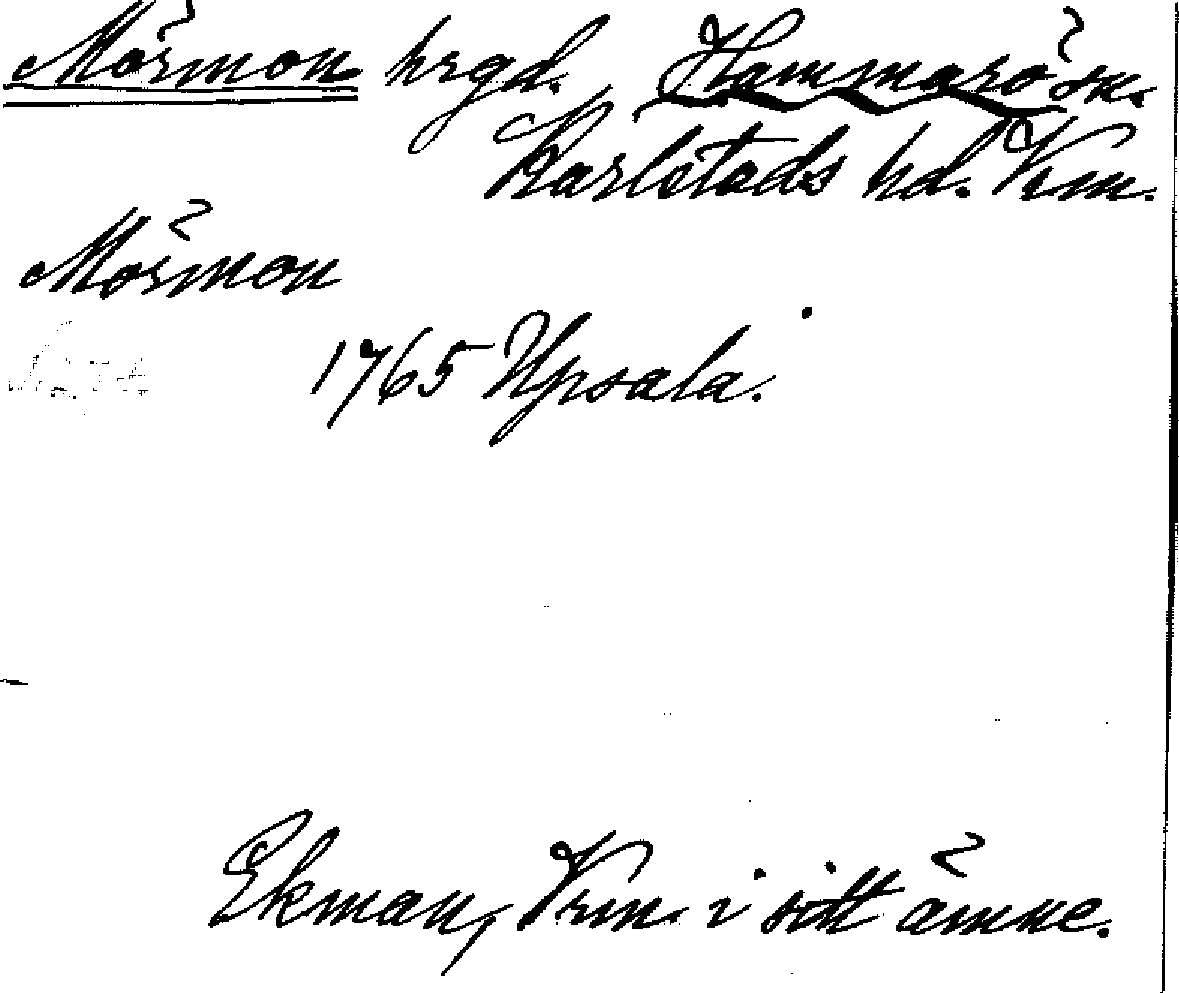 Mörmon hrgd. Hammarö sn.
Karlstads hd. Vrm.
Mörmon
1765 Upsala.
Ekman, Vrm. i sitt ämne.